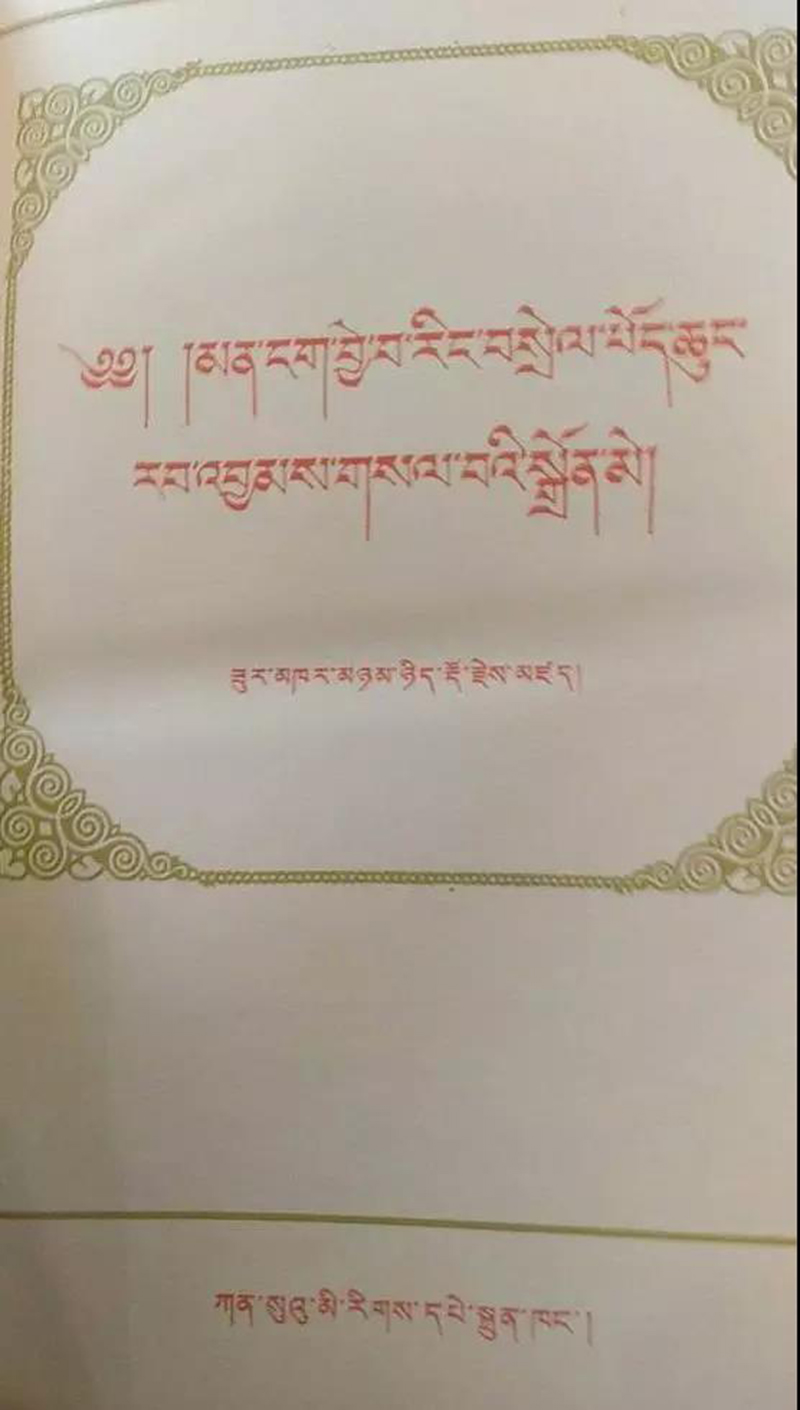 ༄༅། །མན་ངག་བྱེ་བ་རིང་བསྲེལ་པོད་ཆུང་
རབ་འབྱམས་གསལ་བའི་སྒྲོན་མེ།
ཟུར་མཁར་མཉམ་ཉིད་རྡོ་རྗེས་མཛད།
ཀན་སུའུ་མི་རིགས་དཔེ་སྐྲུན་ཁང་།